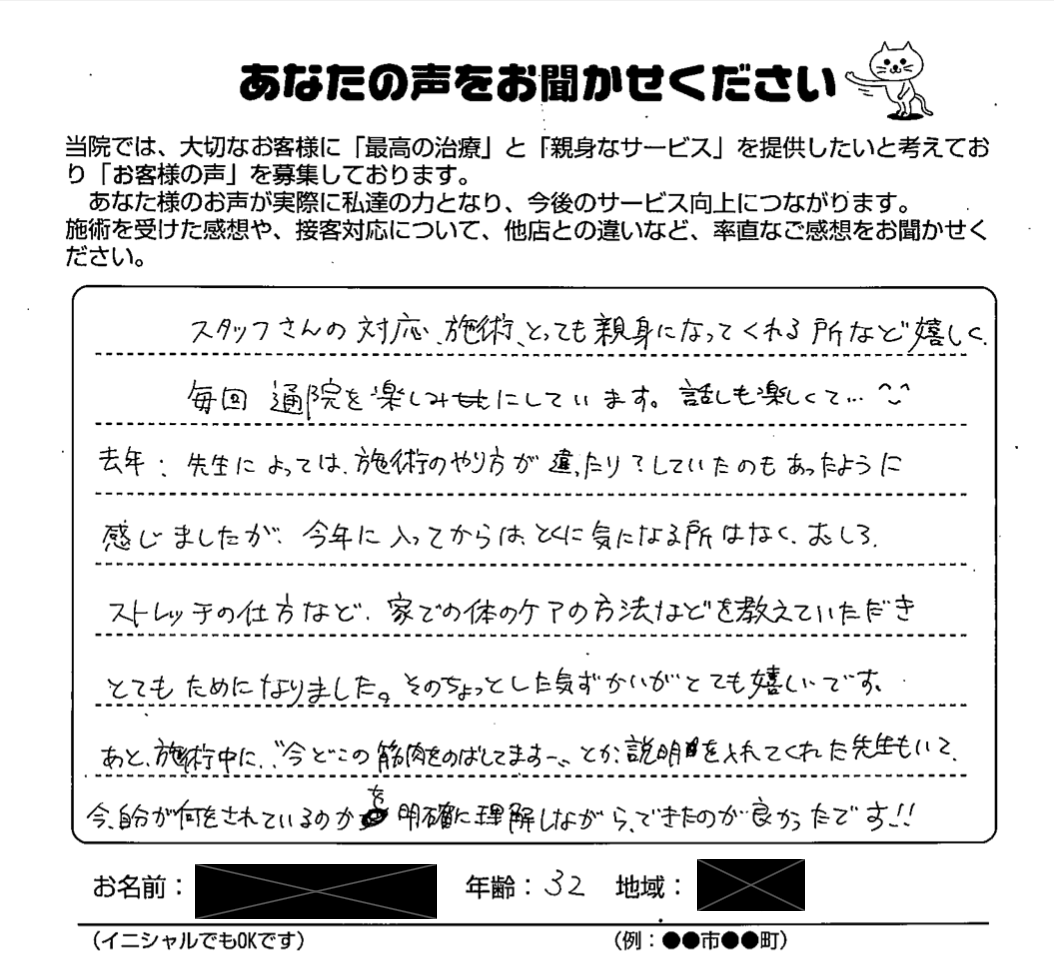 あなたの声をお聞かせください
当院では、大切なお客様に「最高の治療」と「親身なサービス」を提供したいと考えてお
り「お客様の声」を募集しております。
あなた様のお声が実際に私達の力となり、今後のサービス向上につながります。
施術を受けた感想や、接客対応について、他店との違いなど、率直なご感想をお聞かせく
ださい。
スタッフさんの対応、施術、とっても親身になってくれる所など嬉しく、
毎回 通院を楽しみにしています。話しも楽しくて…^^
去年：先生によっては、施術のやり方が違ったり？していたのもあったように
感じましたが、今年に入ってからは、とくに気になる所はなく、むしろ、
ストレッチの仕方など、家での体のケアの方法などを教えていただき
とてもためになりました。そのちょっとした気ずかいがとても嬉しいです。
あと、施術中に、“今どこの筋肉をのばしてます〜”とか、説明を入れてくれた先生もいて、
今、自分が何をされているのかを明確に理解しながら、できたのが良かったです!!
お名前： 年齢：32 地域：
（イニシャルでもOKです） （例：●●市●●町）